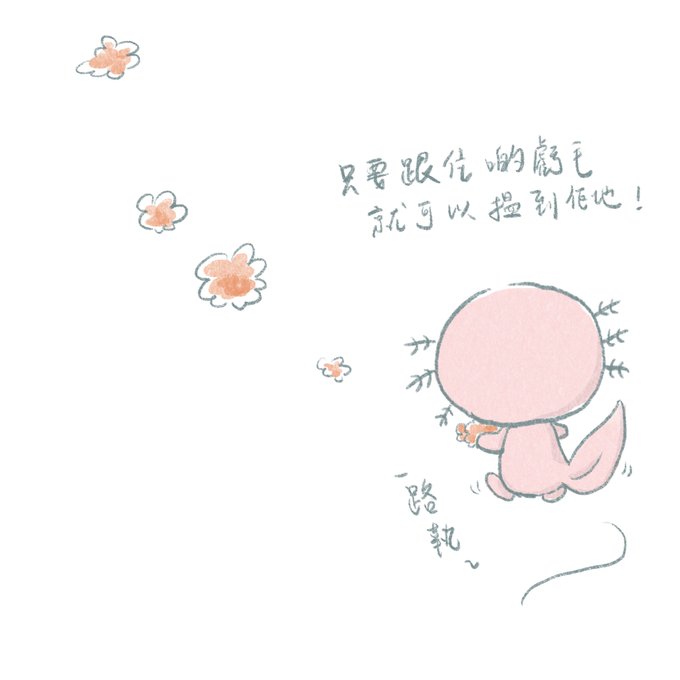 只要跟住啲虧毛
就可以搵到佢地！
一路
執~